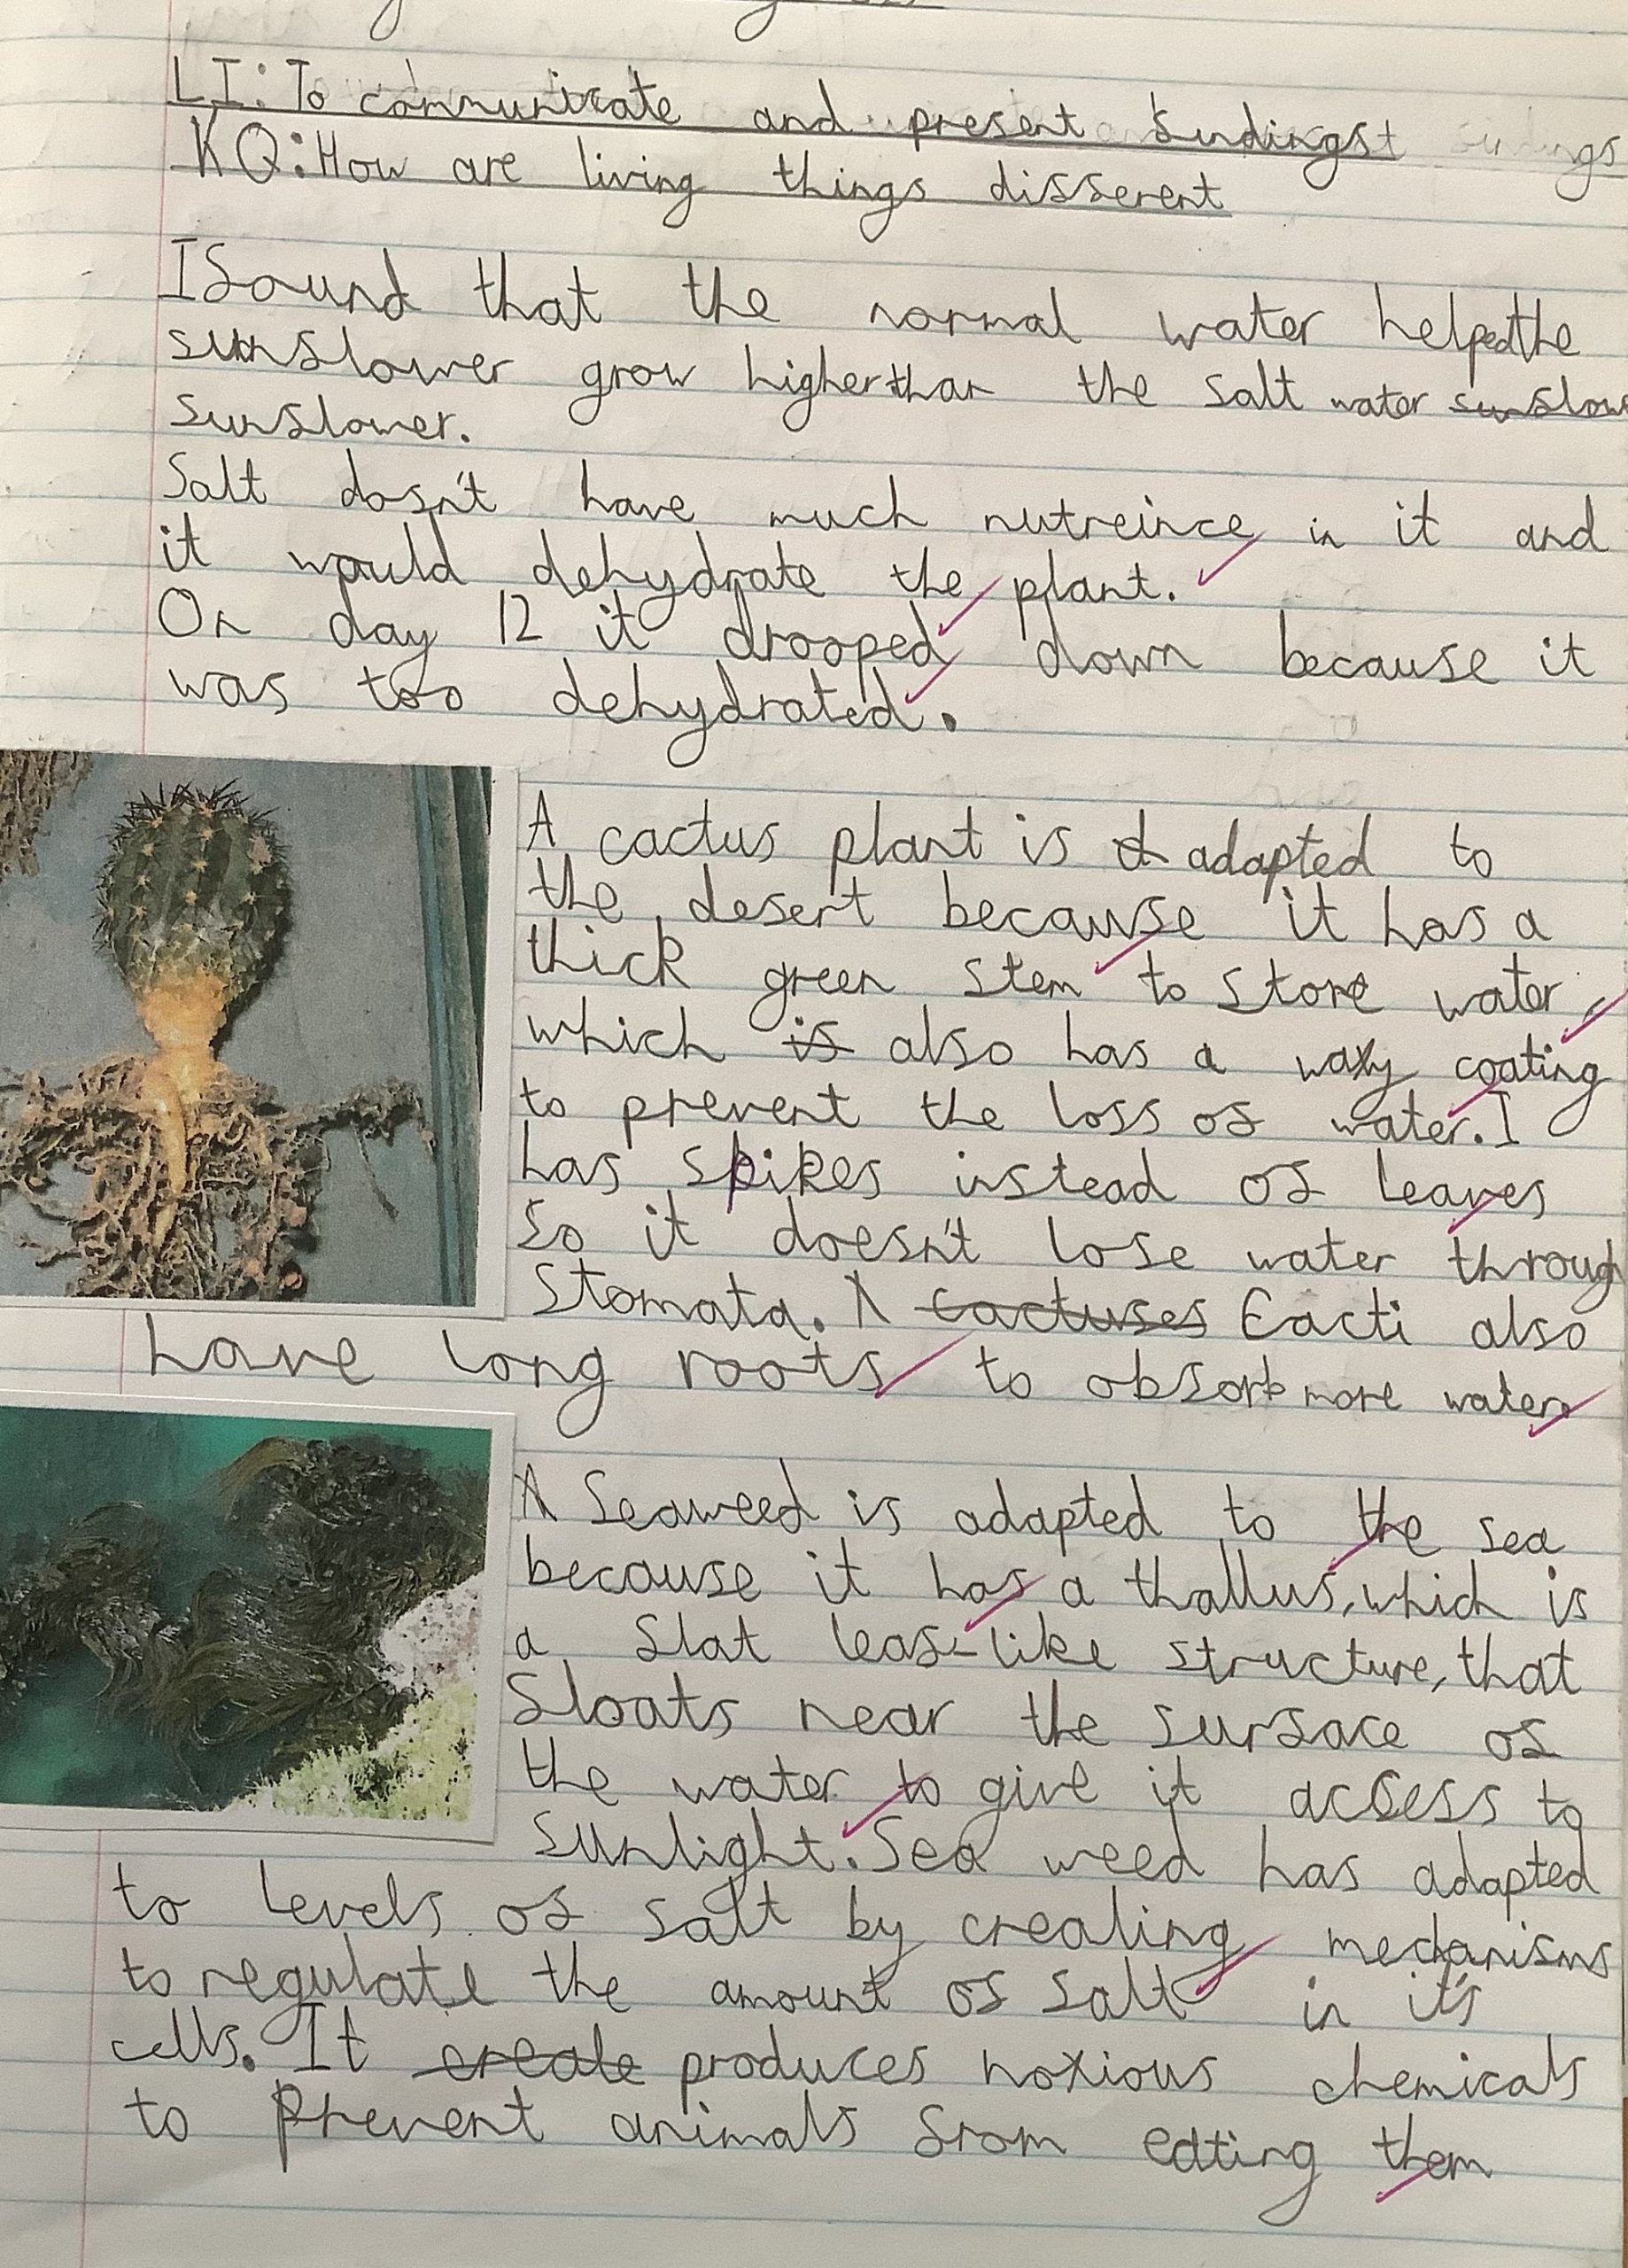 LI: To communicate and present findings
KQ: How are living things different
I found that the normal water helped the
sunflower grow higher than the salt water sunflow
sunflower.
Salt dosn't have much nutreince in it and
it would dehydrate the plant.
On day 12 it drooped down because it
was too dehydrated.
A cactus plant is adapted to
the desert because it has a
thick green stem to store water,
which is also has a waxy coating
to prevent the loss of water. I
has spikes instead of leaves
so it doesn't lose water through
stomata. A cactuses Cacti also
have long roots to absorb more water.
A Seaweed is adapted to the sea
because it has a thallus, which is
a flat leaf-like structure, that
floats near the surface of
the water to give it access to
sunlight. Sea weed has adapted
to levels of salt by creating mechanisms
to regulate the amount of salt in it's
cells. It create produces noxious chemicals
to prevent animals from eating them